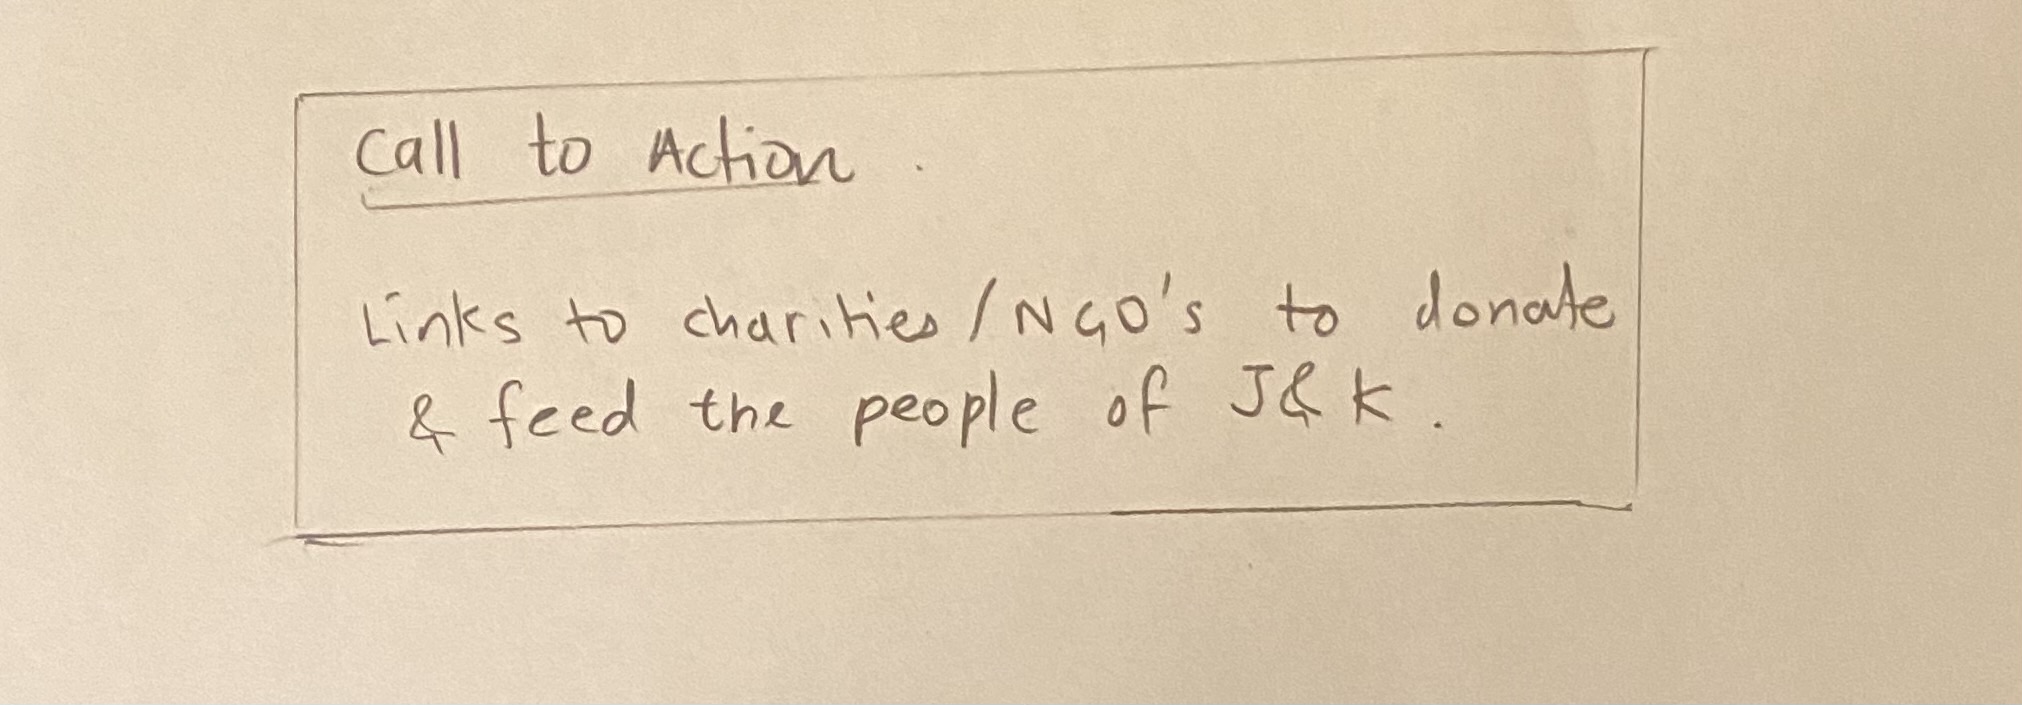 Call to Action.
Links to charities/NGO's to donate
& feed the people of J&K.